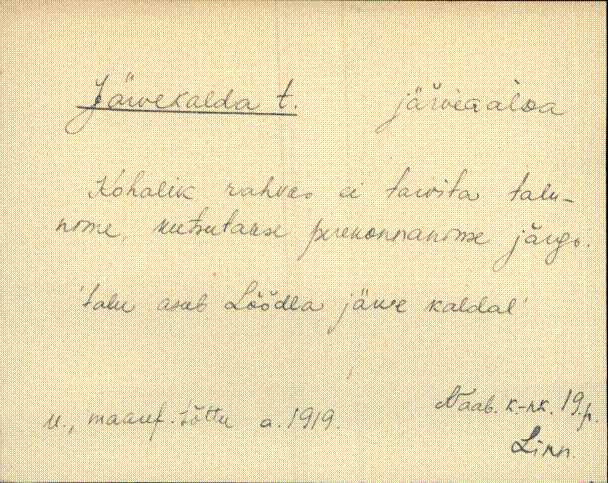 Järvekalda t. järve
Kohalik rahvas ei tarvita talu-
nime, kutsutakse perekonnanime järge.
'talu asub Lõõdla järve kaldal'
u., maaref. tõttu a. 1919.
Naab. k.-nk. 19.p.
Linn.